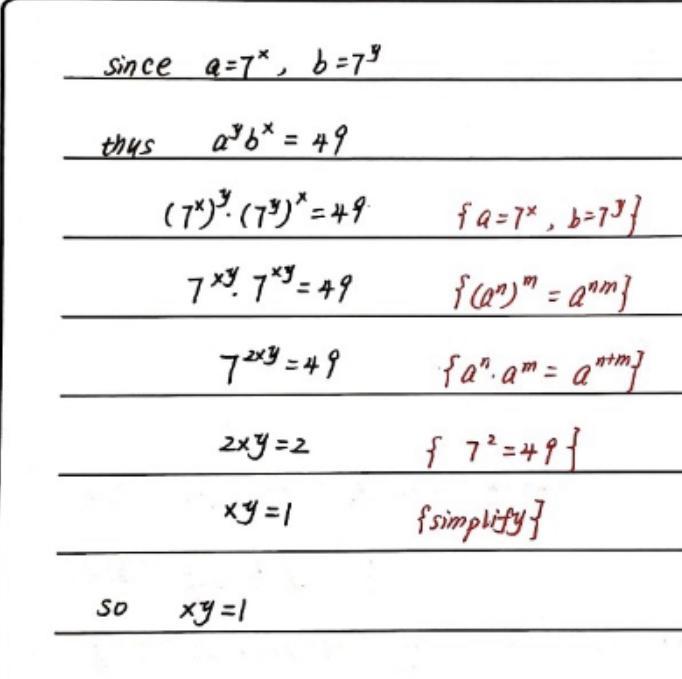 since a=7ˣ, b=7ʸ
thus aʸbˣ = 49
(7ˣ)ʸ·(7ʸ)ˣ=49 {a=7ˣ, b=7ʸ}
7ˣʸ·7ˣʸ=49 {(aⁿ)ᵐ = aⁿᵐ}
7²ˣʸ=49 {aⁿ·aᵐ= aⁿ⁺ᵐ}
2xy=2 { 7²=49 {
xy=1 {simplify}
so xy=1